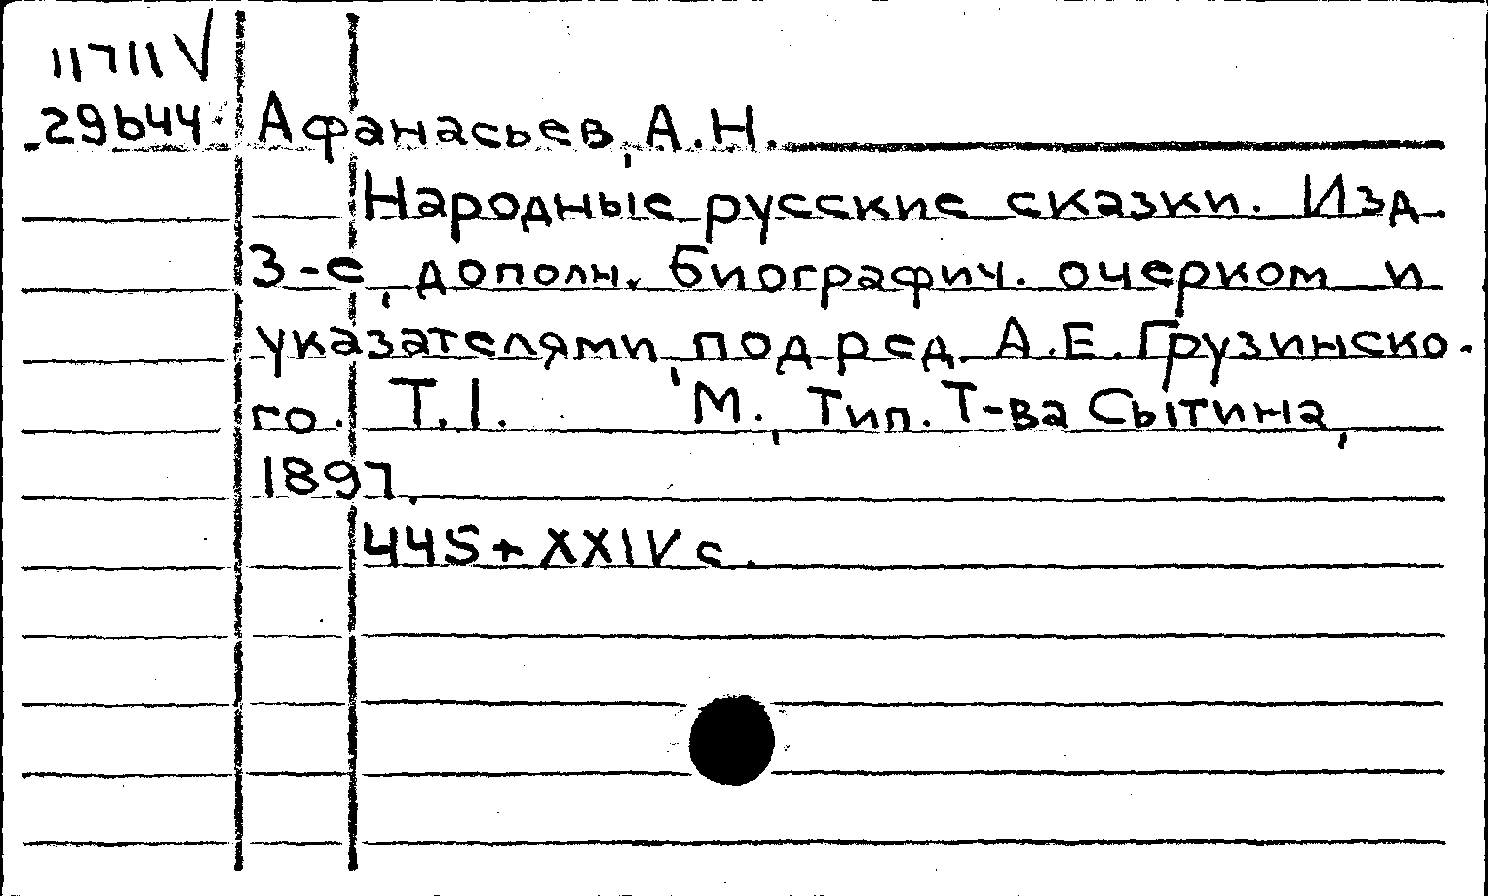 11711 V
29b44 Афанасьев, А.Н.
Народные русские сказки. Изд.
3-е, дополн. биографич. очерком и
указателями, под ред. А.Е.Грузинско-
го. Т.I. М., Тип. Т-ва Сытина,
1897.
445+XXIV с.